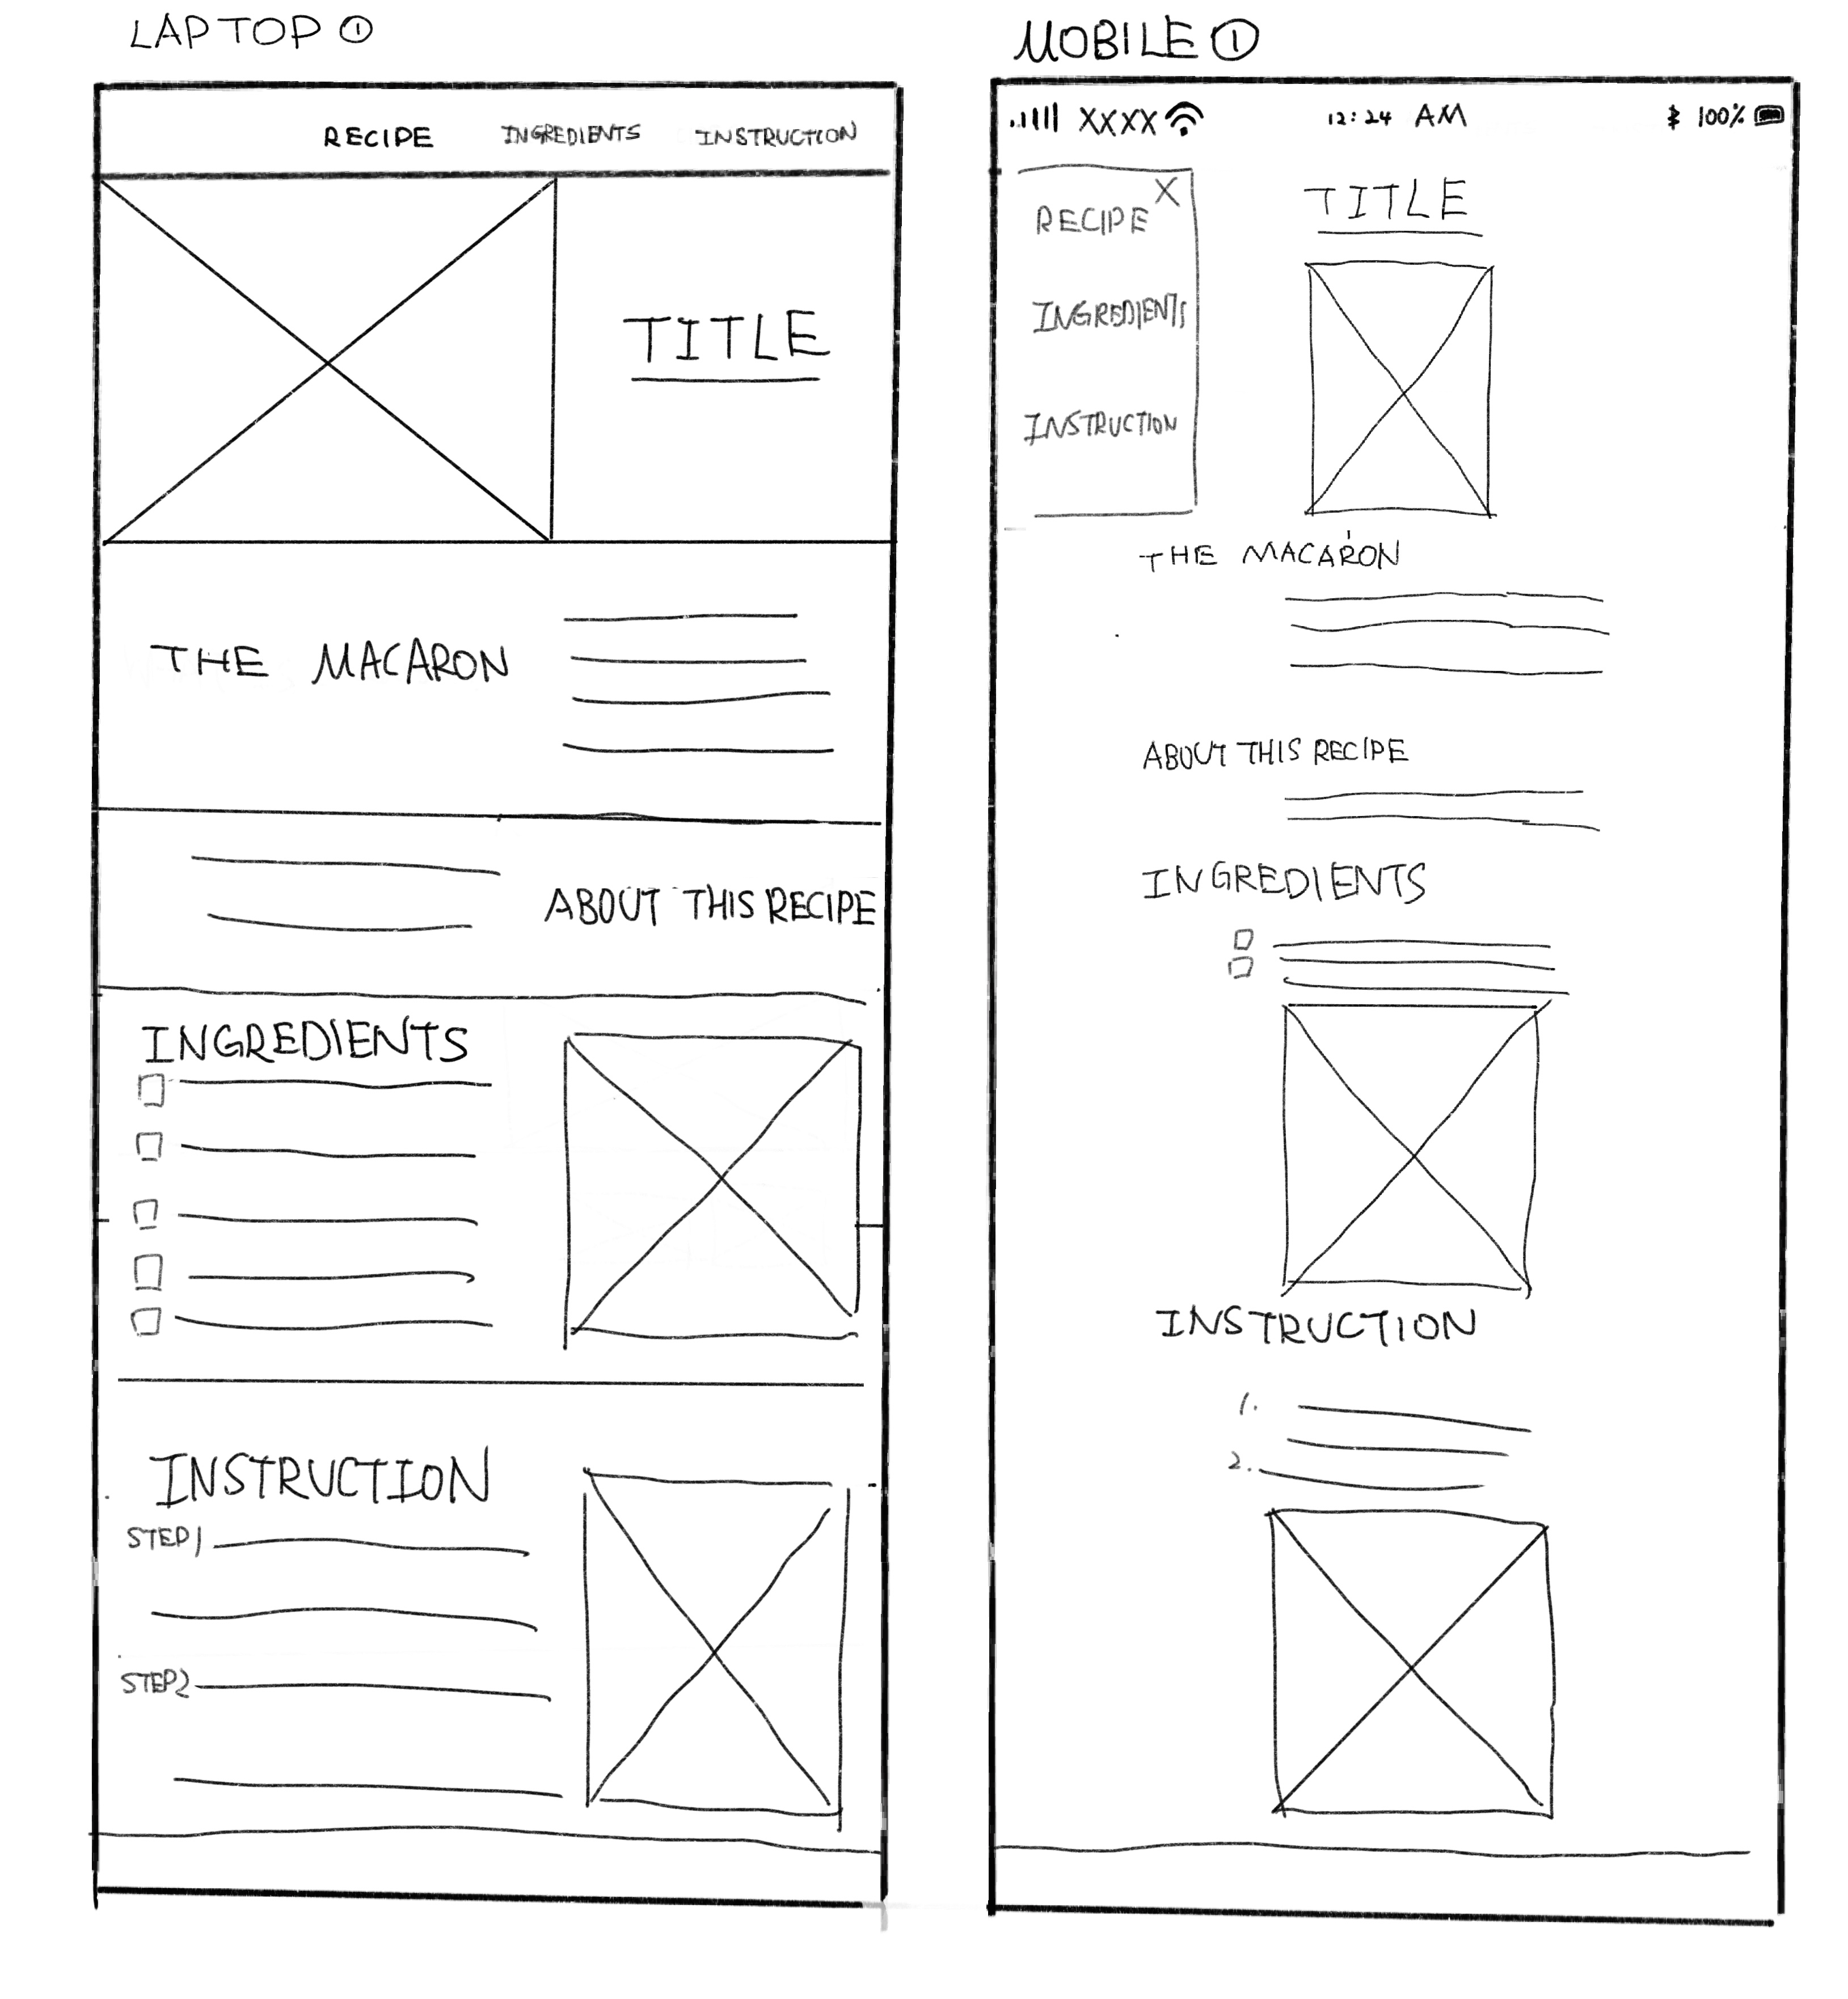 LAPTOP ①
RECIPE INGREDIENTS INSTRUCTION
TITLE
THE MACARON
ABOUT THIS RECIPE
INGREDIENTS
INSTRUCTION
STEP1
STEP2
MOBILE ①
XXXX 12:24 AM 100%
X
RECIPE
INGREDIENTS
INSTRUCTION
TITLE
THE MACARON
ABOUT THIS RECIPE
INGREDIENTS
INSTRUCTION
1.
2.